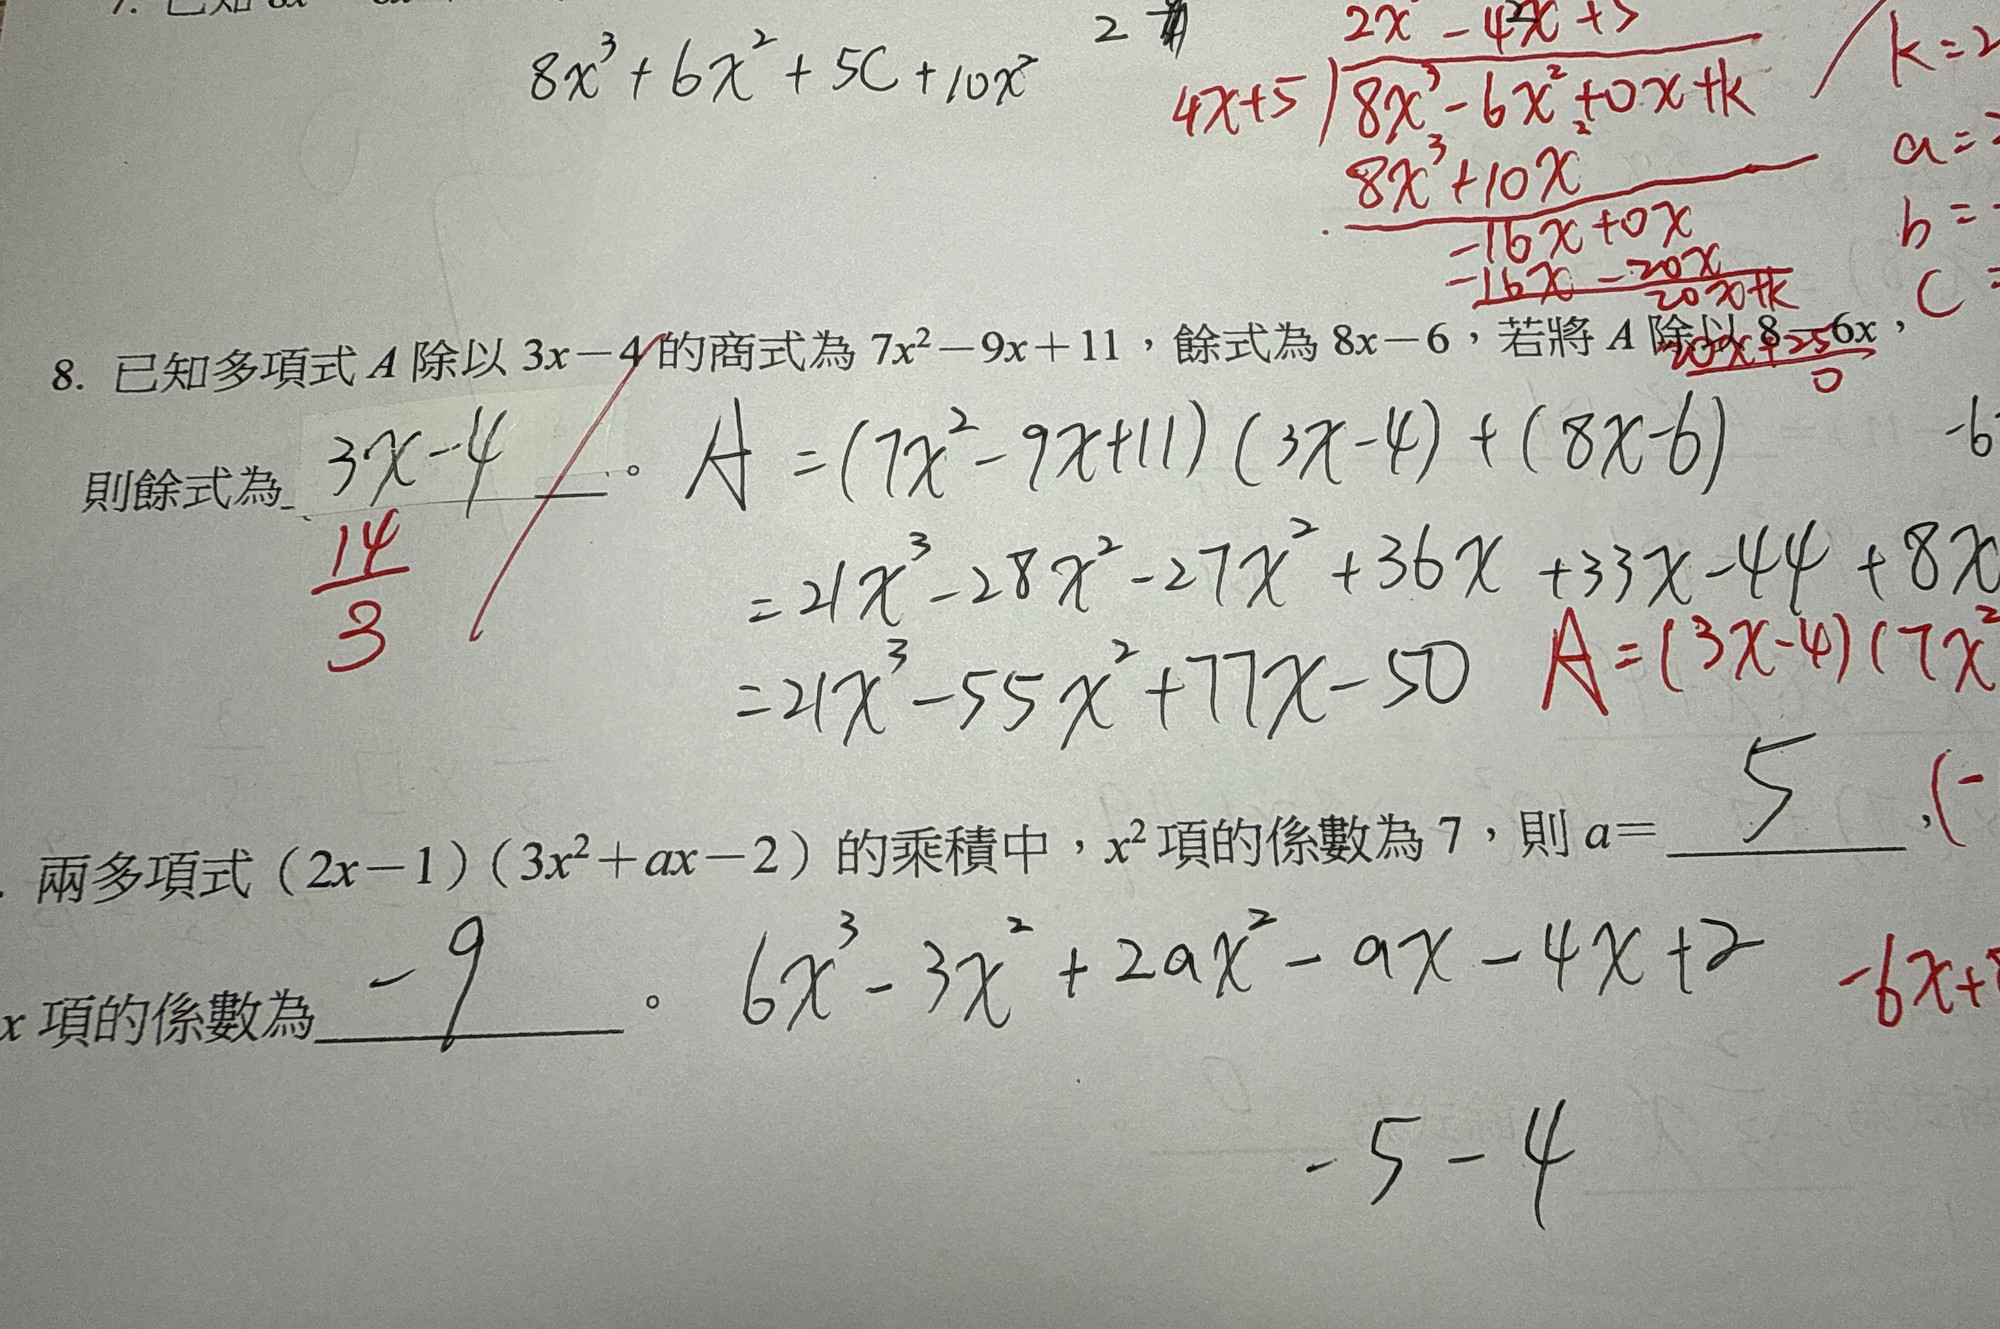 7. 已知 8x
8x³+6x²+5C+10x²
2
2x²-4x+5
4x+5 ) 8x³-6x²+0x+k
8x³+10x²
-16x+0x
-16x-20x
20x+k
20x+25
0
k=2
a=
b=
C=
8. 已知多項式 A 除以 3x-4 的商式為 7x²-9x+11,餘式為 8x-6,若將 A 除以 8-6x,
則餘式為 3x-4 。
14/3
A=(7x²-9x+11)(3x-4)+(8x-6)
=21x³-28x²-27x²+36x+33x-44+8x
=21x³-55x²+77x-50
-6
A=(3x-4)(7x²
兩多項式(2x-1)(3x²+ax-2)的乘積中,x²項的係數為 7,則 a= 5 ,
(-
x 項的係數為 -9 。
6x³-3x²+2ax²-ax-4x+2
-6x+
-5-4